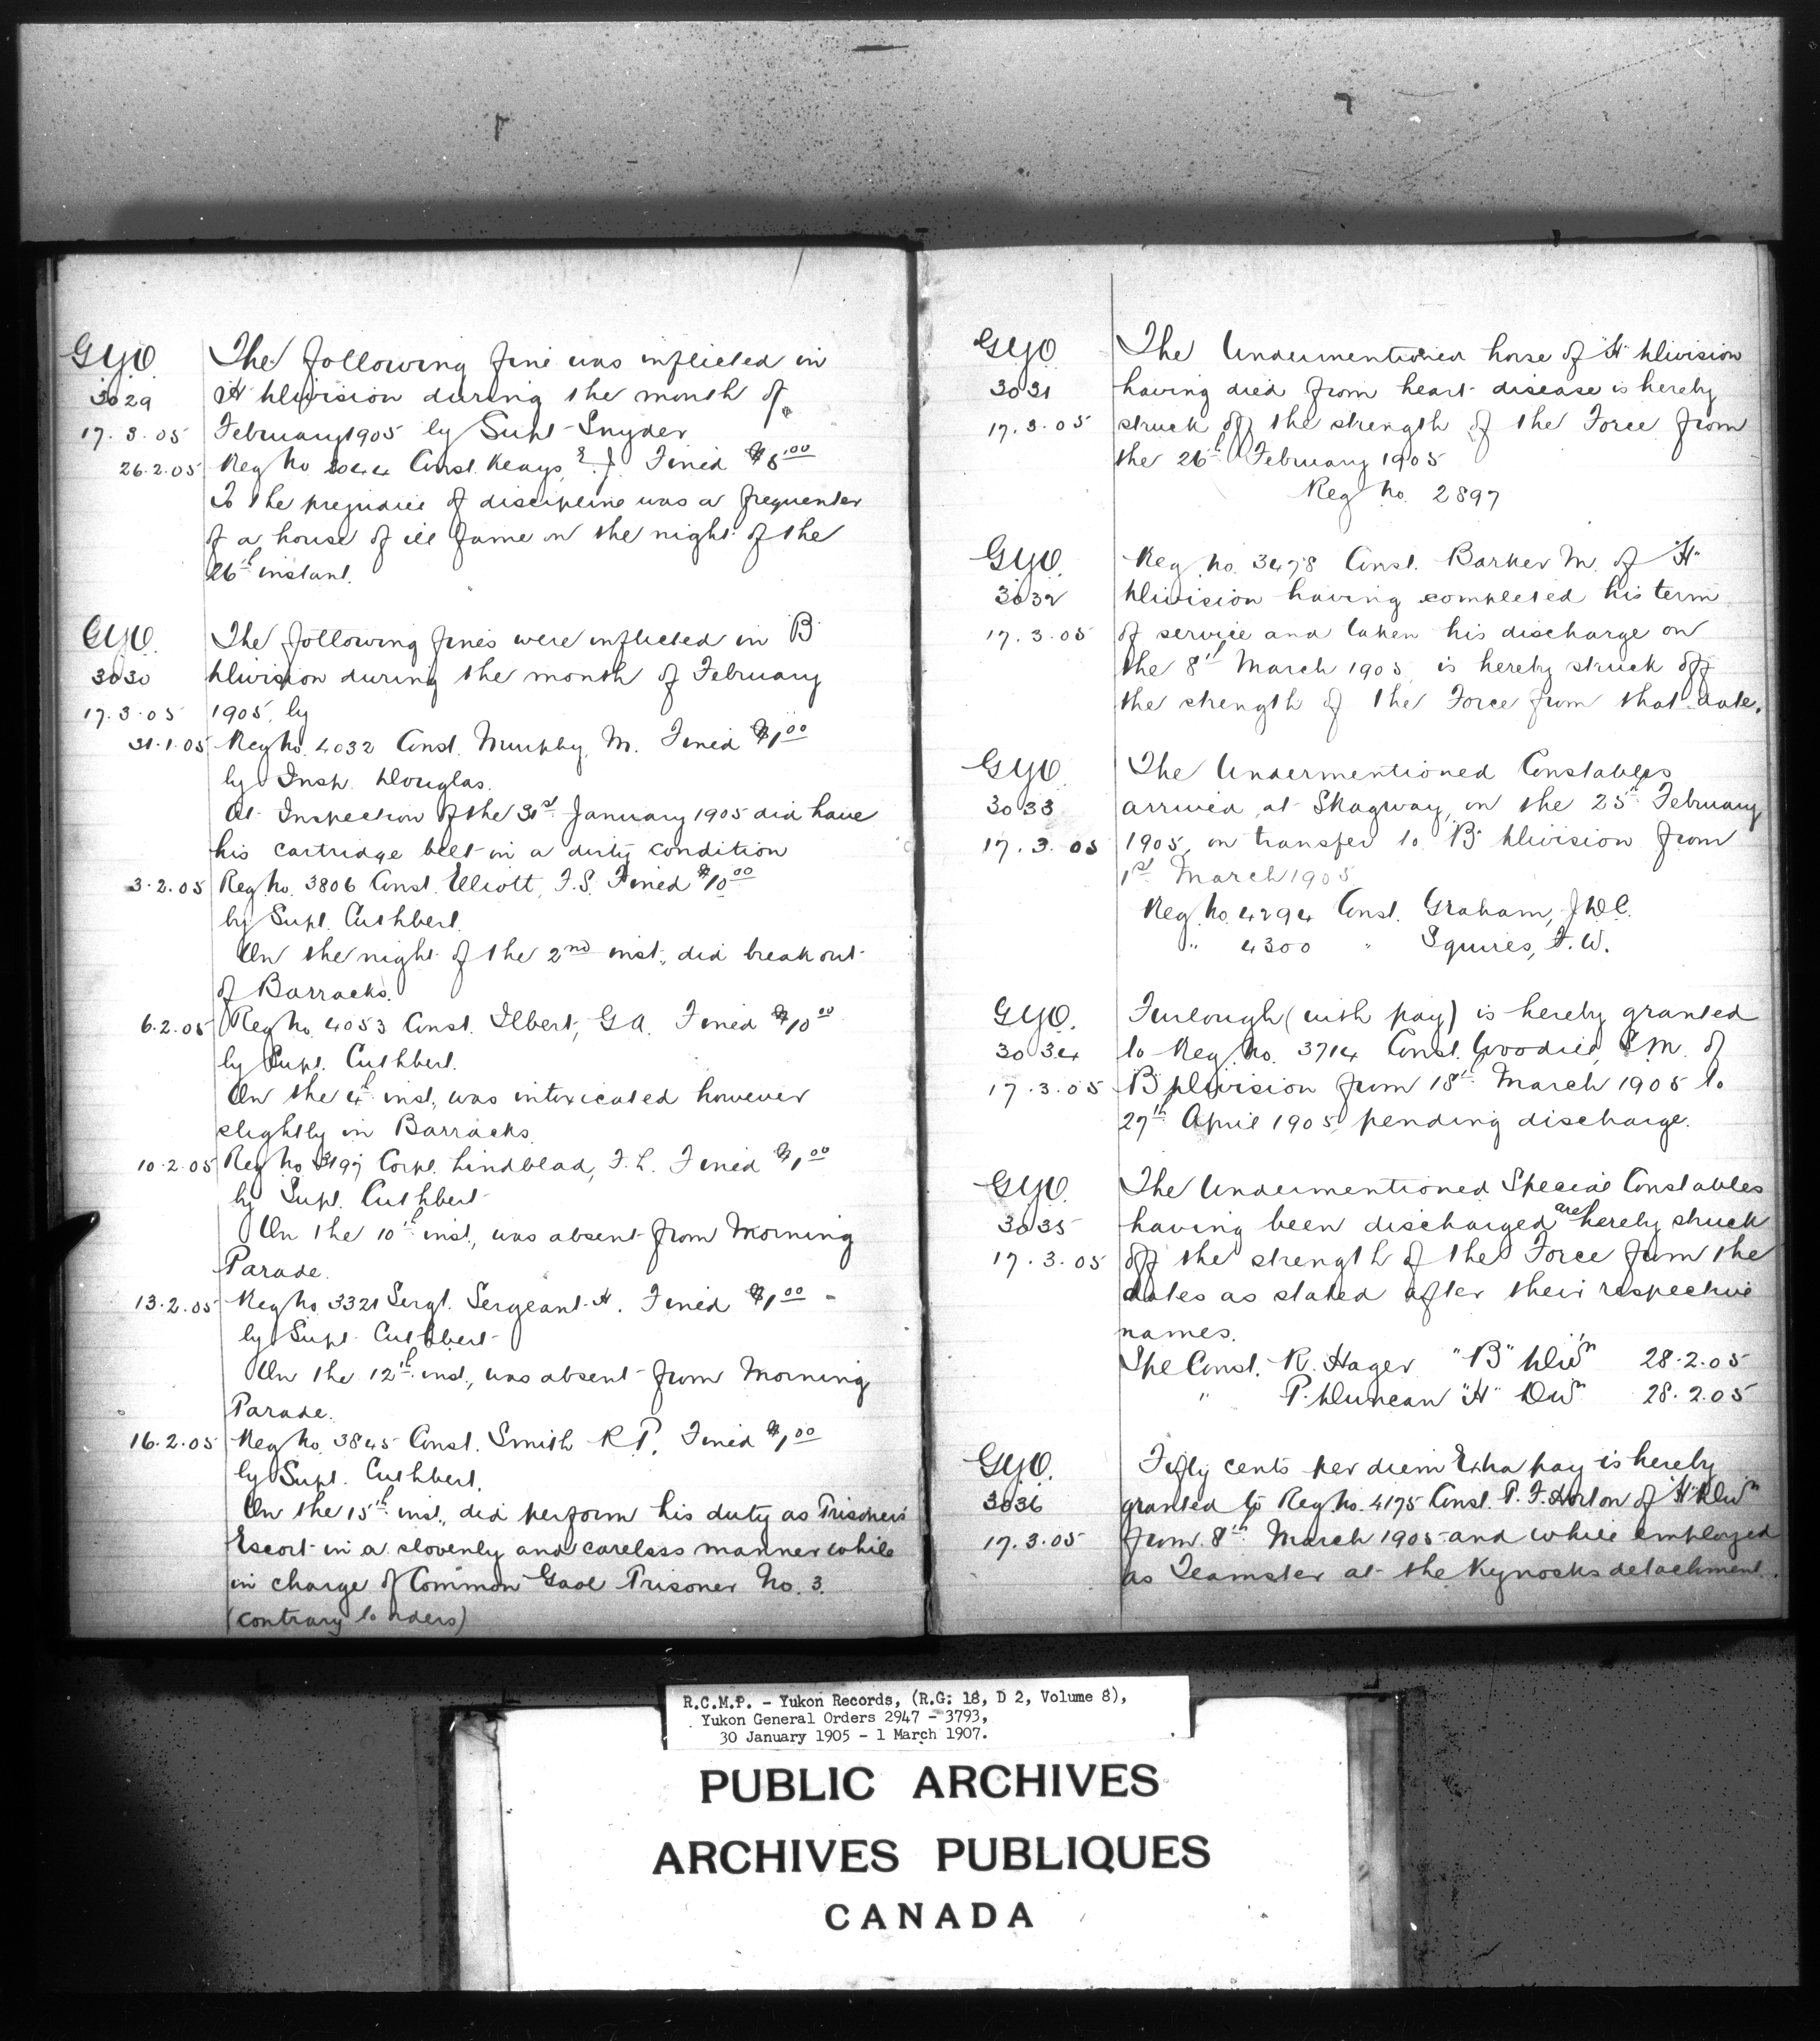 GYO The following fine was inflicted in
3029 "H" Division during the month of
17.3.05 February 1905 by Supt Snyder
26.2.05 Reg No Const. Keays, E. J. Fined $5.00
To the prejudice of discipline was a frequenter
of a house of ill fame on the night of the
26th instant.
GYO. The following fines were inflicted in B
3030 Division during the month of February
17.3.05 1905, by
31.1.05 Reg No. 4032 Const. Murphy, M. Fined $1.00
by Insp. Douglas.
At Inspection of the 31st January 1905 did have
his cartridge belt in a dirty condition
3.2.05 Reg No. 3806 Const. Elliott, F.S. Fined $10.00
by Supt. Cuthbert.
On the night of the 2nd inst., did break out
of Barracks.
6.2.05 Reg No. 4053 Const. Ilbert, G A. Fined $10.00
by Supt. Cuthbert.
On the 4th inst., was intoxicated however
slightly in Barracks.
10.2.05 Reg No 3197 Corpl. Lindblad, F. L. Fined $1.00
by Supt. Cuthbert
On the 10th inst., was absent from Morning
Parade.
13.2.05 Reg No. 3321 Sergt. Sergeant H. Fined $1.00 -
by Supt. Cuthbert
On the 12th inst., was absent from Morning
Parade.
16.2.05 Reg No. 3845 Const. Smith R P. Fined $1.00
by Supt. Cuthbert.
On the 15th inst., did perform his duty as Prisoners'
Escort in a slovenly and careless manner while
in charge of Common Gaol Prisoner No. 3.
(contrary to orders)
GYO The Undermentioned horse of "H" Division
3031 having died from heart disease is hereby
17.3.05 struck off the strength of the Force from
the 26th February 1905
Reg No. 2897
GYO. Reg. No. 3478 Const. Barker M. of "H"
3032 Division having completed his term
17.3.05 of service and taken his discharge on
the 8th March 1905, is hereby struck off
the strength of the Force from that date.
GYO. The Undermentioned Constables
3033 arrived at Skagway, on the 25th February
17.3.05 1905, on transfer to "B" Division from
1st March 1905
Reg. No. 4294 Const. Graham, J.D.C.
" 4300 " Squires, F. W.
GYO. Furlough (with pay) is hereby granted
3034 to Reg. No. 3714 Const. Woodill, E.M. of
17.3.05 B Division from 18th March 1905 to
27th April 1905 pending discharge.
GYO. The Undermentioned Special Constables
3035 having been discharged are hereby struck
17.3.05 off the strength of the Force from the
dates as stated after their respective
names.
Spe Const. R. Hager "B" Divn 28.2.05
" P. Duncan "H" Divn 28.2.05
GYO. Fifty cents per diem Extra pay is hereby
3036 granted to Reg No. 4175 Const. P. F. Horton of "H" Divn
17.3.05 from 8th March 1905 and while employed
as Teamster at the Kynocks detachment.
R.C.M.P. - Yukon Records, (R.G: 18, D 2, Volume 8),
Yukon General Orders 2947 - 3793,
30 January 1905 - 1 March 1907.
PUBLIC ARCHIVES
ARCHIVES PUBLIQUES
CANADA